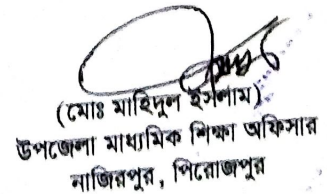 (মোঃ মাহিদুল ইসলাম)
উপজেলা মাধ্যমিক শিক্ষা অফিসার
নাজিরপুর, পিরোজপুর